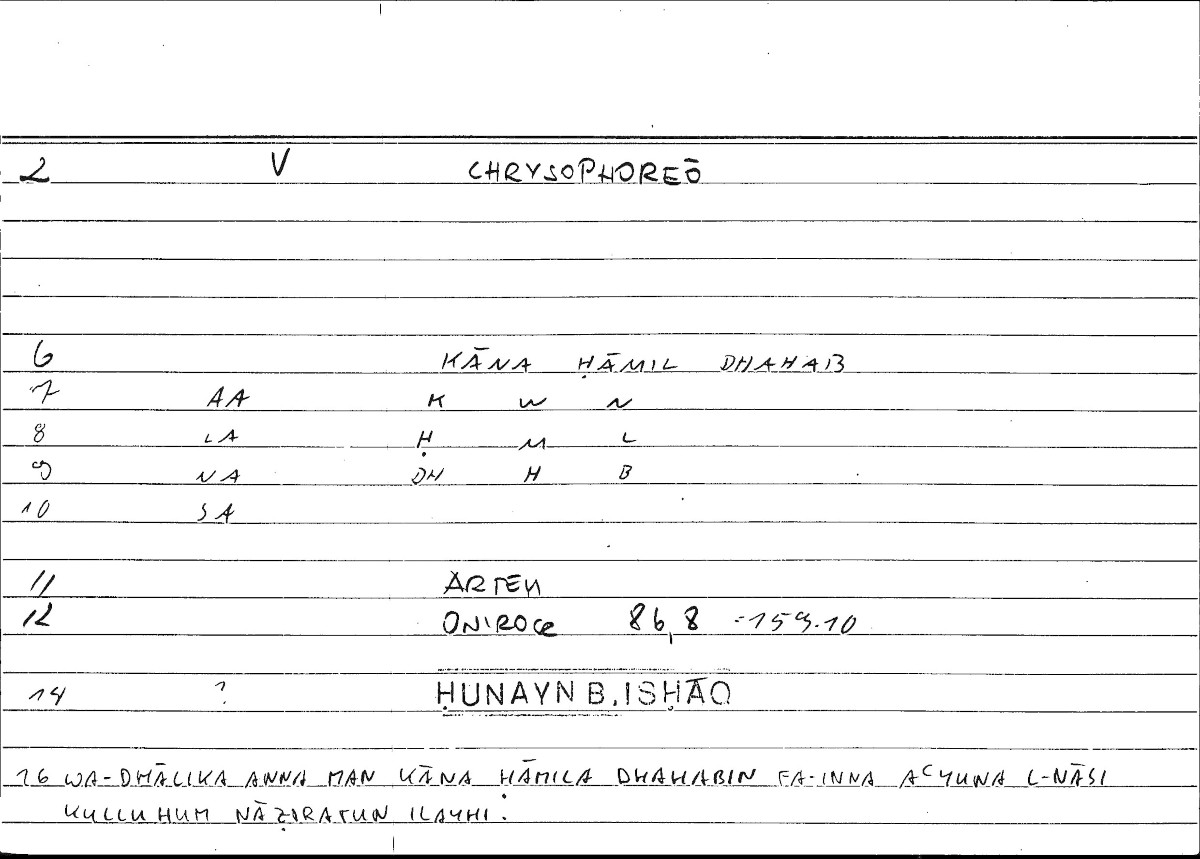 2 V CHRYSOPHOREŌ
6 KĀNA ḤĀMIL DHAHAB
7 AA K W N
8 LA Ḥ M L
9 NA DH H B
10 SA
11 ARTEM
12 ONIROCR 86,8 =159.10
14 ? ḤUNAYN B. ISḤĀQ
16 WA-DHĀLIKA ANNA MAN KĀNA ḤĀMILA DHAHABIN FA-INNA AʿYUNA L-NĀSI
KULLUHUM NĀẒIRATUN ILAYHI :